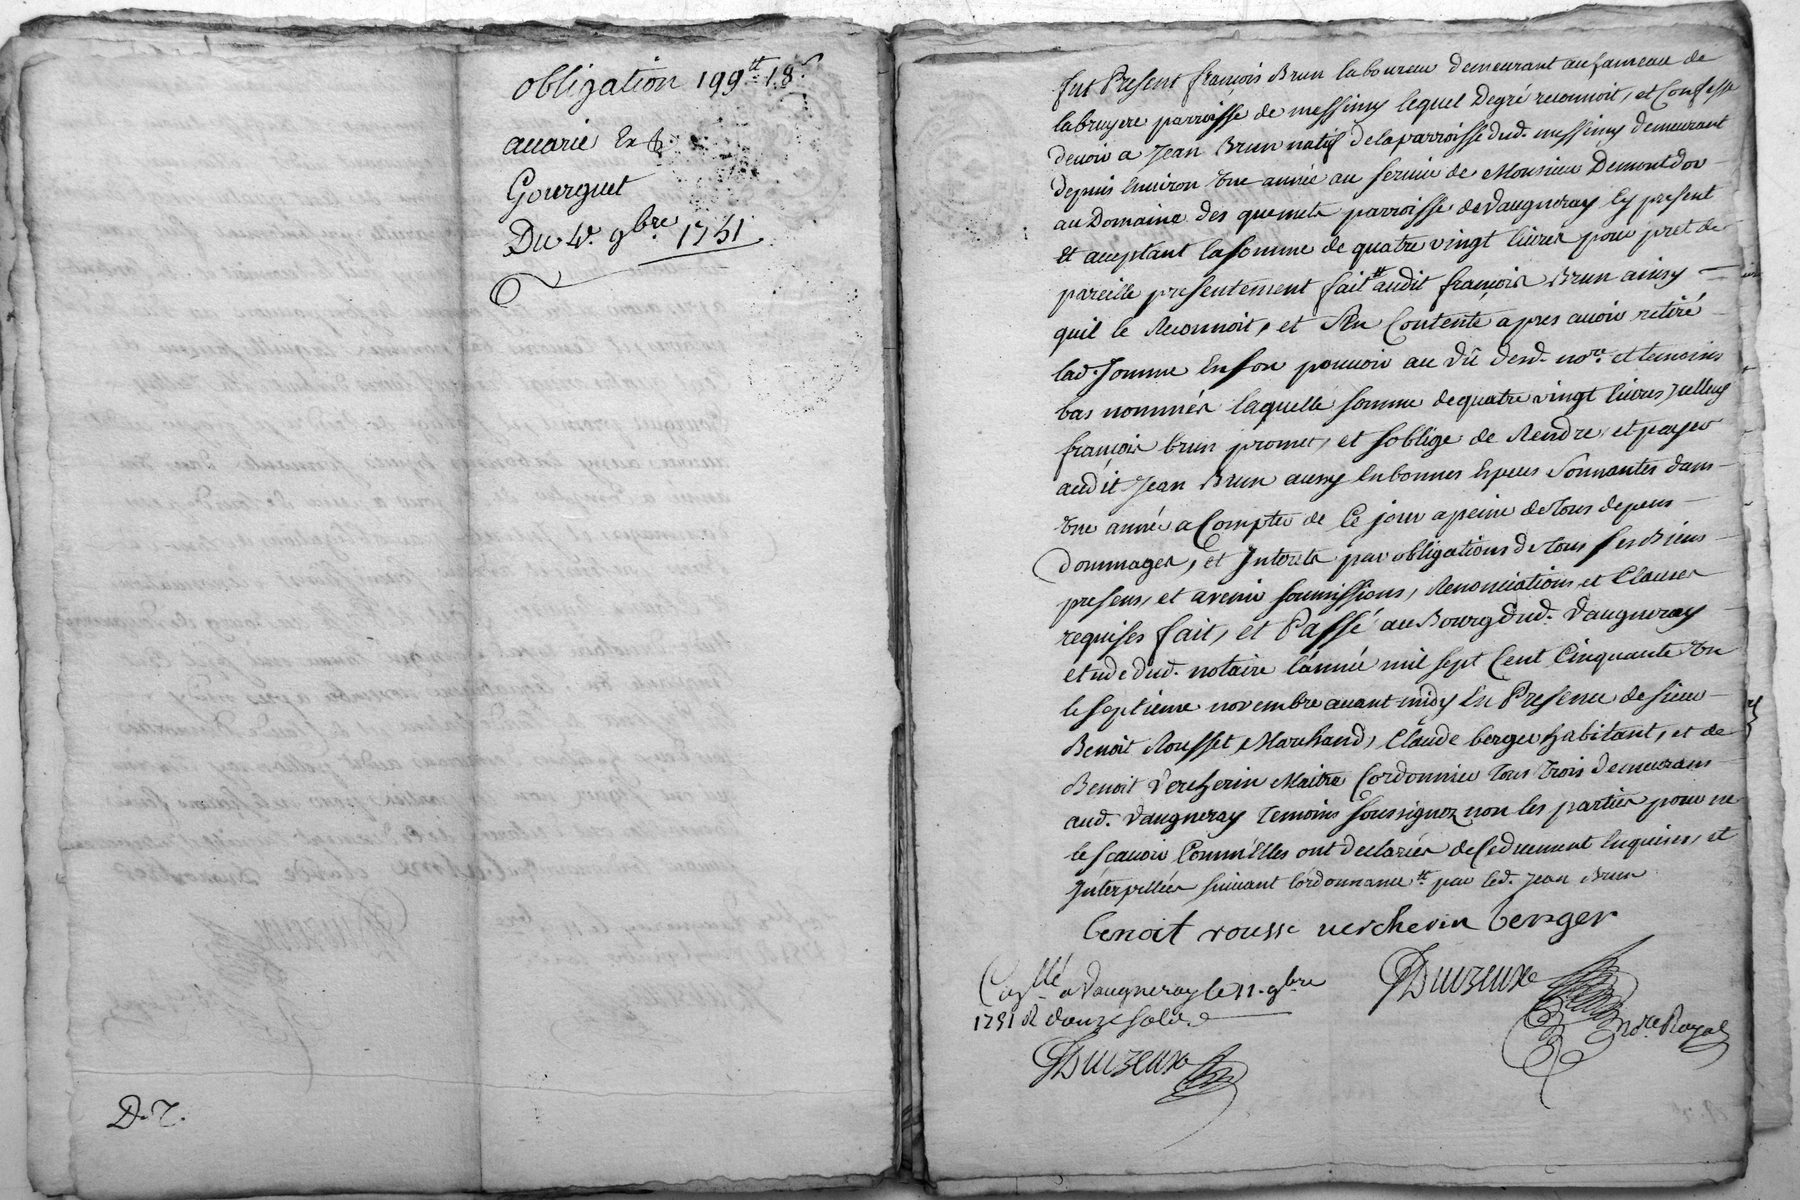 obligation 199tt 18s
Gourguet
Du 4e 9bre 1751
D. T.
fut Présent françois Brun laboureur demeurant au hameau de
labruyere parroisse de messimy lequel Degré reconnoit, et Confesse
devoir a Jean Brun natif de la parroisse dud. messimy demeurant
depuis Environ une année au service de Monsieur Demontdor
au Domaine des quemets parroisse de Vaugneray Cy present
Et acceptant la somme de quatre vingt livres pour pret de
pareille presentement fait audit françois Brun ainsy
quil le Reconnoit, et s'En Contente apres avoir retiré
lad. somme En son pouvoir au vû dud. nore. et temoins
bas nommés laquelle somme de quatre vingt livres icelluy
françois brun promet, et soblige de Rendre, et payer
audit Jean Brun aussy En bonnes Especes Sonnantes dans
une année a Compter de Ce jour a peine de tous depens
dommages, et Interets par obligations de tous ses Biens
presens, et avenir soumissions, Renonciations et Clauses
requises fait, et Passé au Bourg dud. Vaugneray
etude dud. notaire l'année mil sept Cent Cinquante un
le septieme novembre avant midy En Presence de sieur
Benoit Rousset Marchand, Claude berger habitant, et de
Benoit Vercherin Maitre Cordonnier tous trois demeurans
aud. Vaugneray temoins soussignez non les parties pour ne
le scavoir Comm'Elles ont declarées de Ce duement Enquises, et
Interpellées suivant l'ordonnance tt par led. Jean Brun
benoit rousse vercherin berger
Conllé a Vaugneray le 11. 9bre
1751 R douze sols
Duizeux
Duizeux
Nore Royal